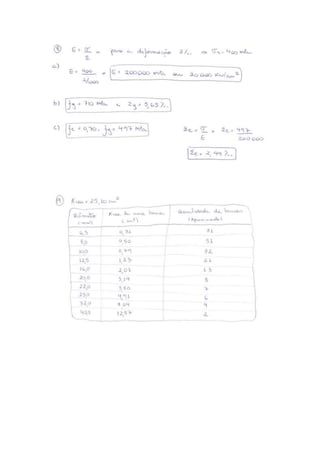 ⑧ E = σ/ε → para a deformação 2‰ → σc = 400 MPa
a) E = 400 / 2/1000 → E = 200000 MPa ou 20 000 KN/cm²
b) fy = 710 MPa → εy = 5,65 ‰
c) fc = 0,70. fy = 497 MPa
εc = σ/E → εc = 497/200000
εc = 2,49 ‰
⑨ Área = 25,10 cm²
Bitola (mm) Área de uma barra (cm²) Quantidade de barras (Aproximado)
6,3 0,31 81
8,0 0,50 51
10,0 0,79 32
12,5 1,23 21
16,0 2,01 13
20,0 3,14 8
22,0 3,80 7
25,0 4,91 6
32,0 8,04 4
40,0 12,57 2